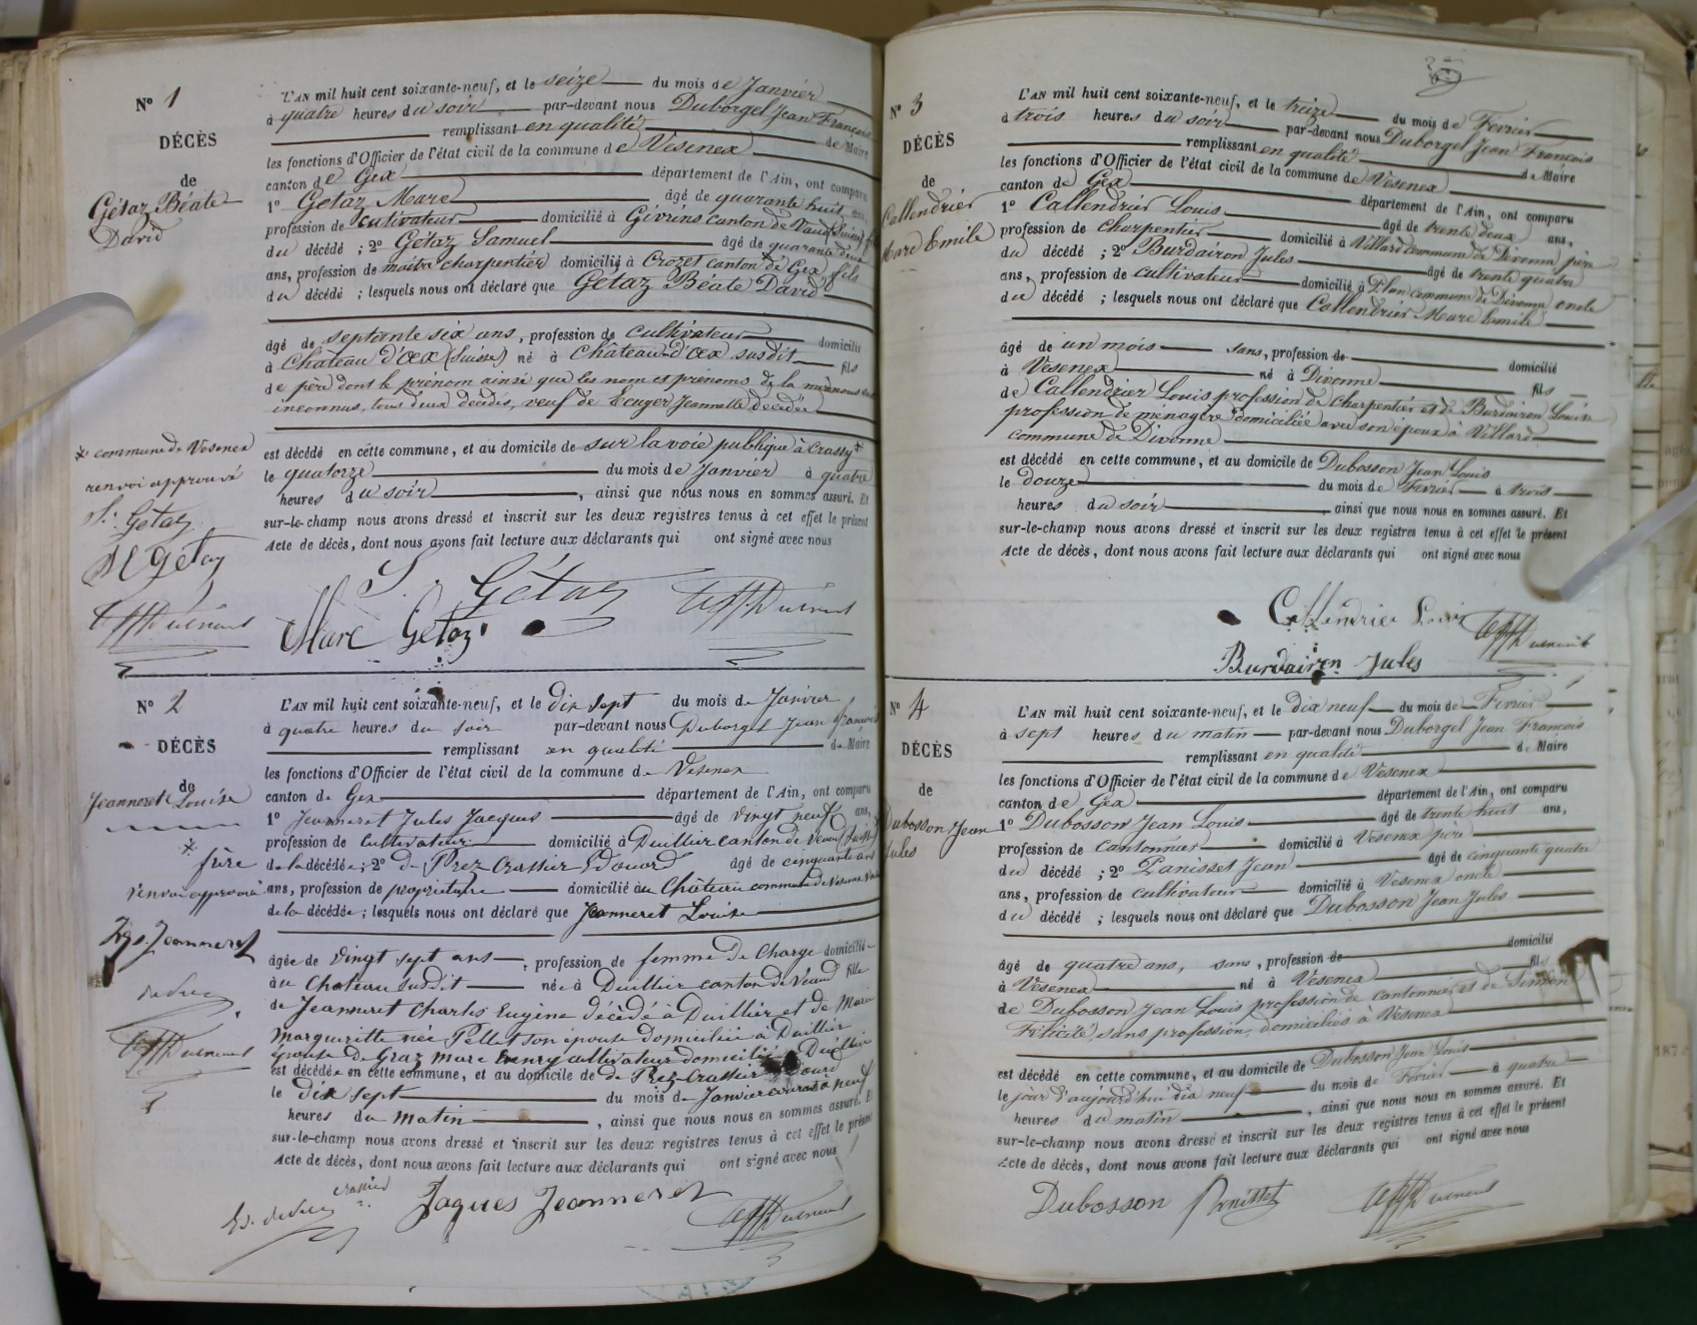 Nº 1
DÉCÈS
de
Gétaz Béate
David
L'AN mil huit cent soixante-neuf, et le seize du mois de Janvier
à quatre heures du soir par-devant nous Duborgel Jean François
remplissant en qualité de Maire
les fonctions d'Officier de l'état civil de la commune de Vesenex
canton de Gex département de l'Ain, ont comparu
1º Gétaz Marc âgé de quarante huit ans,
profession de cultivateur domicilié à Givrins canton de Vaud
du décédé ; 2º Gétaz Samuel âgé de quarante deux
ans, profession de maître charpentier domicilié à Crozet canton de Gex, fils
du décédé ; lesquels nous ont déclaré que Gétaz Béate David
âgé de septante six ans, profession de cultivateur domicilié
à Château d'œx (Suisse) né à Château-d'œx susdit fils
de père dont le prénom ainsi que les nom et prénoms de la mère nous
inconnus, tous deux décédés, veuf de Ecuyer Jeannette décédée
est décédé en cette commune, et au domicile de sur la voie publique à Crassy *
le quatorze du mois de Janvier à quatre
heures du soir , ainsi que nous nous en sommes assuré. Et
sur-le-champ nous avons dressé et inscrit sur les deux registres tenus à cet effet le présent
Acte de décès, dont nous avons fait lecture aux déclarants qui ont signé avec nous
* commune de Vesenex
renvoi approuvé
S. Getaz
M Getaz
S. Gétaz
Marc Getaz
Nº 2
DÉCÈS
de
Jeanneret Louise
L'AN mil huit cent soixante-neuf, et le dix sept du mois de Janvier
à quatre heures du soir par-devant nous Duborgel Jean François
remplissant en qualité de Maire
les fonctions d'Officier de l'état civil de la commune de Vesenex
canton de Gex département de l'Ain, ont comparu
1º Jeanneret Jules Jacques âgé de vingt neuf ans,
profession de cultivateur domicilié à Duillier canton de Vaud (Suisse) *
de la décédée ; 2º de Prez-Crassier Edouard âgé de cinquante
ans, profession de propriétaire domicilié au Château commune de Vesenex
de la décédée ; lesquels nous ont déclaré que Jeanneret Louise
âgée de vingt sept ans , profession de femme de charge domiciliée
au Chateau susdit née à Duillier canton de Vaud fille
de Jeanneret Charles Eugène décédé à Duillier et de Marie
Marguerite née Pellet son épouse domiciliée à Duillier
épouse de Graz Marc Henry cultivateur domicilié à Duillier
est décédée en cette commune, et au domicile de de Prez-Crassier Edouard
le dix sept du mois de Janvier courant à neuf
heures du matin , ainsi que nous nous en sommes assuré. Et
sur-le-champ nous avons dressé et inscrit sur les deux registres tenus à cet effet le présent
Acte de décès, dont nous avons fait lecture aux déclarants qui ont signé avec nous
* frère
renvoi approuvé
Jeanneret
crassier
Jaques Jeanneret
Nº 3
DÉCÈS
de
Callendrier
Marc Emile
L'AN mil huit cent soixante-neuf, et le treize du mois de Fevrier
à trois heures du soir par-devant nous Duborgel Jean François
remplissant en qualité de Maire
les fonctions d'Officier de l'état civil de la commune de Vesenex
canton de Gex département de l'Ain, ont comparu
1º Callendrier Louis âgé de trente deux ans,
profession de charpentier domicilié à Villard commune de Divonne père
du décédé ; 2º Burdairon Jules âgé de trente quatre
ans, profession de cultivateur domicilié à Plan commune de Divonne oncle
du décédé ; lesquels nous ont déclaré que Callendrier Marc Emile
âgé de un mois sans, profession de domicilié
à Vesenex né à Divonne fils
de Callendrier Louis profession de charpentier et de Burdairon Louise
profession de ménagère domiciliée avec son époux à Villard
commune de Divonne
est décédé en cette commune, et au domicile de Dubosson Jean Louis
le douze du mois de Fevrier à trois
heures du soir , ainsi que nous nous en sommes assuré. Et
sur-le-champ nous avons dressé et inscrit sur les deux registres tenus à cet effet le présent
Acte de décès, dont nous avons fait lecture aux déclarants qui ont signé avec nous
Callendrier Louis
Burdairon Jules
Nº 4
DÉCÈS
de
Dubosson Jean
Jules
L'AN mil huit cent soixante-neuf, et le dix neuf du mois de Fevrier
à sept heures du matin par-devant nous Duborgel Jean François
remplissant en qualité de Maire
les fonctions d'Officier de l'état civil de la commune de Vesenex
canton de Gex département de l'Ain, ont comparu
1º Dubosson Jean Louis âgé de trente huit ans,
profession de cantonnier domicilié à Vesenex père
du décédé ; 2º Panisset Jean âgé de cinquante quatre
ans, profession de cultivateur domicilié à Vesenex oncle
du décédé ; lesquels nous ont déclaré que Dubosson Jean Jules
âgé de quatre ans, sans , profession de domicilié
à Vesenex né à Vesenex fils
de Dubosson Jean Louis profession de cantonnier et de
Félicité, sans profession, domiciliés à Vesenex
est décédé en cette commune, et au domicile de Dubosson Jean Louis
le jour d'aujourd'hui dix neuf du mois de Fevrier à quatre
heures du matin , ainsi que nous nous en sommes assuré. Et
sur-le-champ nous avons dressé et inscrit sur les deux registres tenus à cet effet le présent
Acte de décès, dont nous avons fait lecture aux déclarants qui ont signé avec nous
Dubosson Panisset